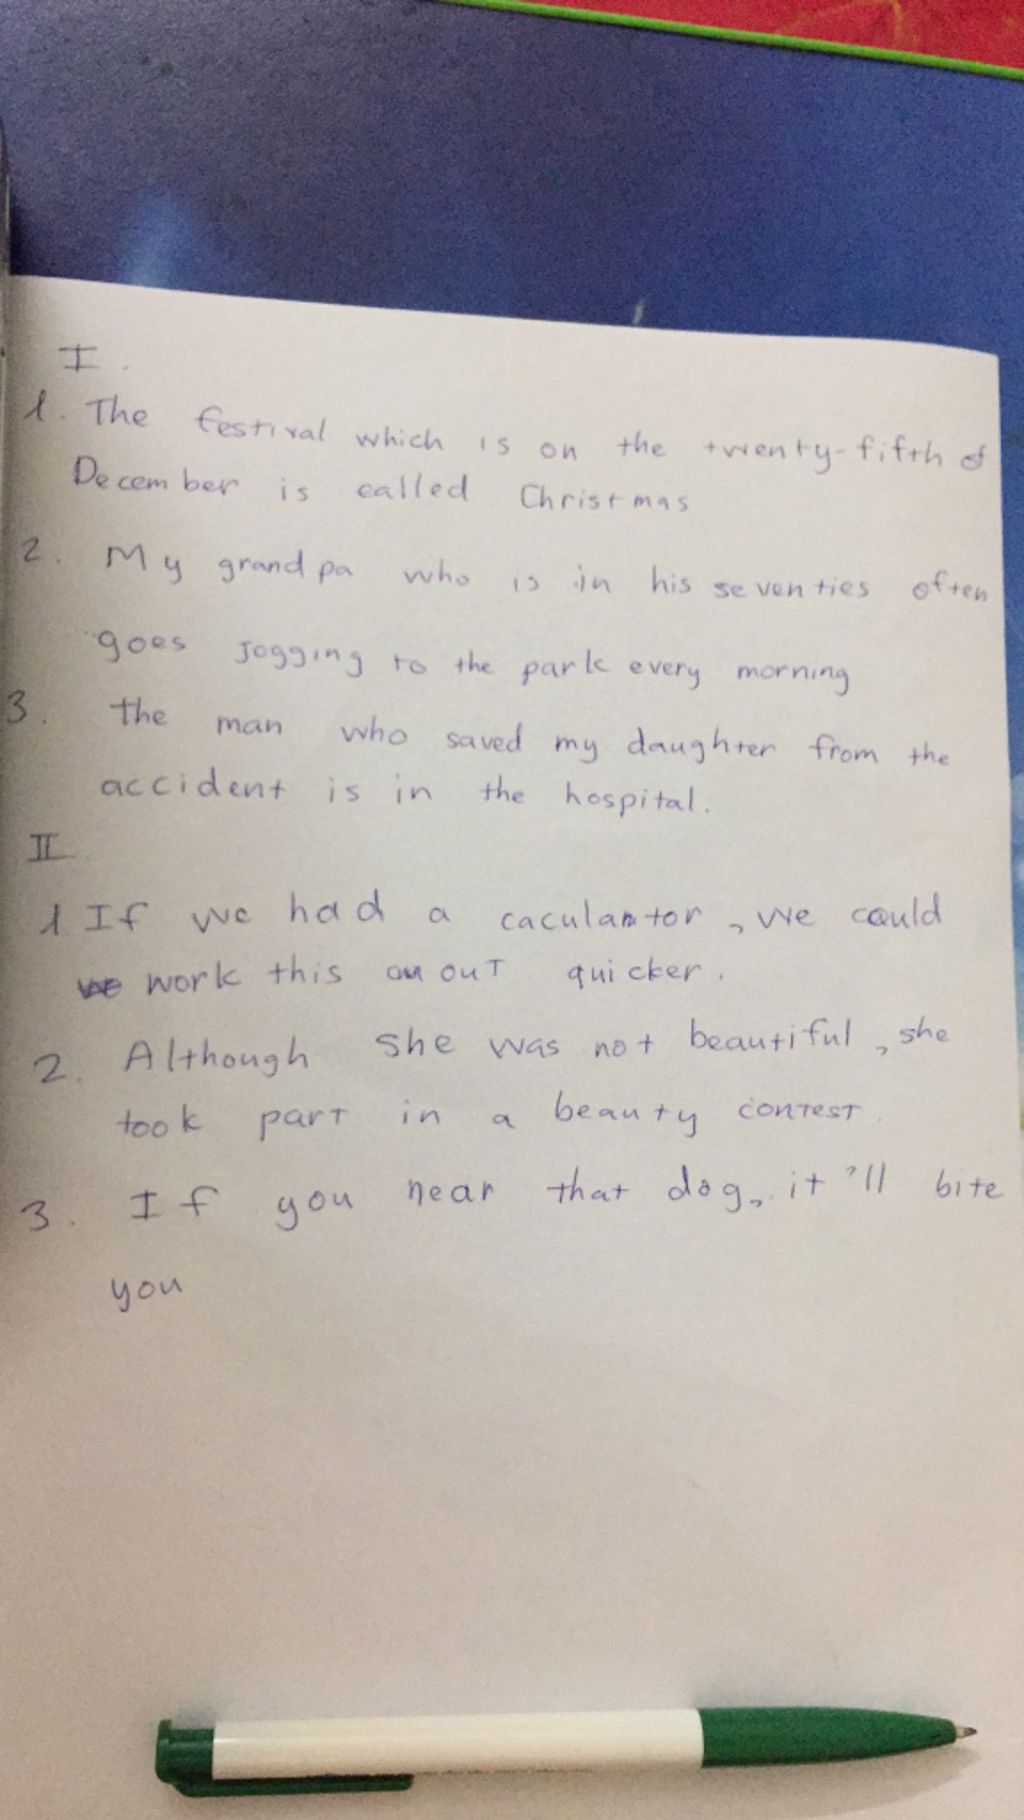 I.
1. The festival which is on the twenty-fifth of
December is called Christmas
2. My grandpa who is in his seventies often
goes jogging to the park every morning
3. the man who saved my daughter from the
accident is in the hospital.
II
1 If we had a caculator, we could
work this out quicker.
2. Although she was not beautiful, she
took part in a beauty contest.
3. If you near that dog, it'll bite
you